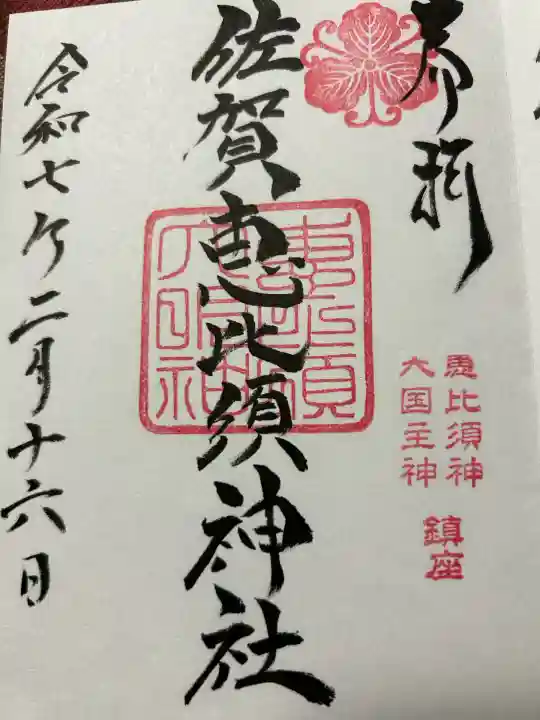 奉拝
恵比須神
大国主神
鎮座
佐賀恵比須神社
恵比須
大明神
令和七年二月十六日